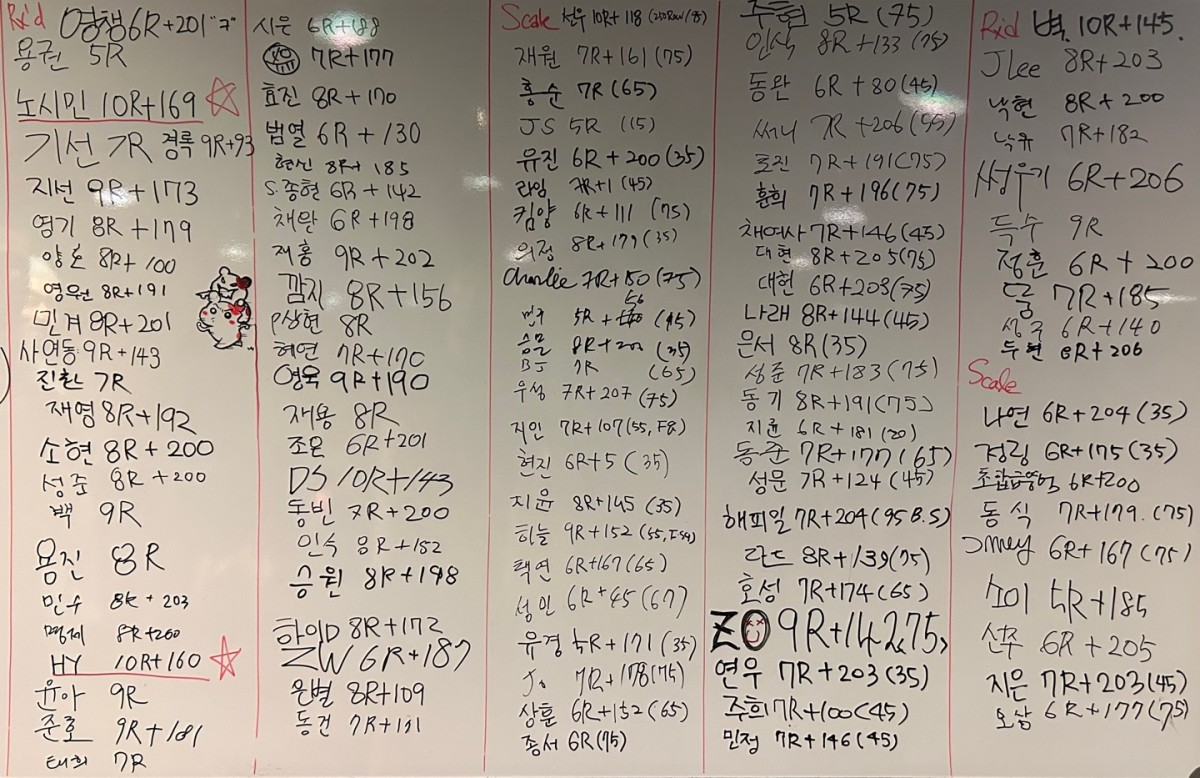 Rx'd 영챙 6R+201 "ㅋ"
용권 5R
노시민 10R+169
기선 7R 경록 9R+93
지선 9R+173
영기 8R+179
양호 8R+100
영원 8R+191
민겨 8R+201
사연동 9R+143
진환 7R
재영 8R+192
소현 8R+200
성준 8R+200
백 9R
용진 8R
민수 8R+203
명제 8R+200
HY 10R+160
윤아 9R
준로 9R+181
태희 7R
시은 6R+188
7R+177
효진 8R+170
범열 6R+130
현신 8R+185
S.종현 6R+142
채완 6R+198
재홍 9R+202
깜지 8R+156
P상현 8R
허연 7R+170
영욱 9R+190
재용 8R
조은 6R+201
DS 10R+143
동빈 7R+200
인숙 8R+182
승원 8R+198
핥일D 8R+172
ZW 6R+187
은별 8R+109
동건 7R+131
Scale 선우 10R+118 (250Row/중)
재원 7R+161 (75)
홍순 7R (65)
JS 5R (15)
유진 6R+200 (35)
라임 7R+1 (45)
킴양 6R+111 (75)
의정 8R+179 (35)
Charlie 7R+150 (75)
민우 5R+56 (45)
승문 8R+202 (35)
BJ 7R (65)
우성 7R+207 (75)
지인 7R+107 (55, F8)
현진 6R+5 (35)
지윤 8R+145 (35)
하늘 9R+152 (55, F59)
택연 6R+167 (65)
성민 6R+45 (67)
유경 5R+171 (35)
Js 7R+178 (75)
상훈 6R+152 (65)
종서 6R (75)
주현 5R (75)
인식 8R+133 (75)
동완 6R+80 (45)
써니 7R+206 (55)
로진 7R+191 (75)
훈희 7R+196 (75)
채여사 7R+146 (45)
대현 8R+205 (75)
대헌 6R+203 (75)
나래 8R+144 (45)
은서 8R (35)
성준 7R+183 (75)
동기 8R+191 (75)
지윤 6R+181 (20)
동준 7R+177 (65)
성문 7R+124 (45)
해피일 7R+204 (95 B.S)
라드 8R+139 (75)
호성 7R+174 (65)
ZO 9R+142 75,
연우 7R+203 (35)
주희 7R+100 (45)
민정 7R+146 (45)
Rxd 벽. 10R+145.
JLee 8R+203
낙현 8R+200
낙유 7R+182
써우기 6R+206
득수 9R
정훈 6R+200
둠 7R+185
성주 6R+140
두현 8R+206
Scale
나연 6R+204 (35)
정링 6R+175 (35)
초합금영억 6R+200
동식 7R+179. (75)
Jmey 6R+167 (75)
소이 5R+185
선주 6R+205
지은 7R+203 (45)
오삼 6R+177 (75)